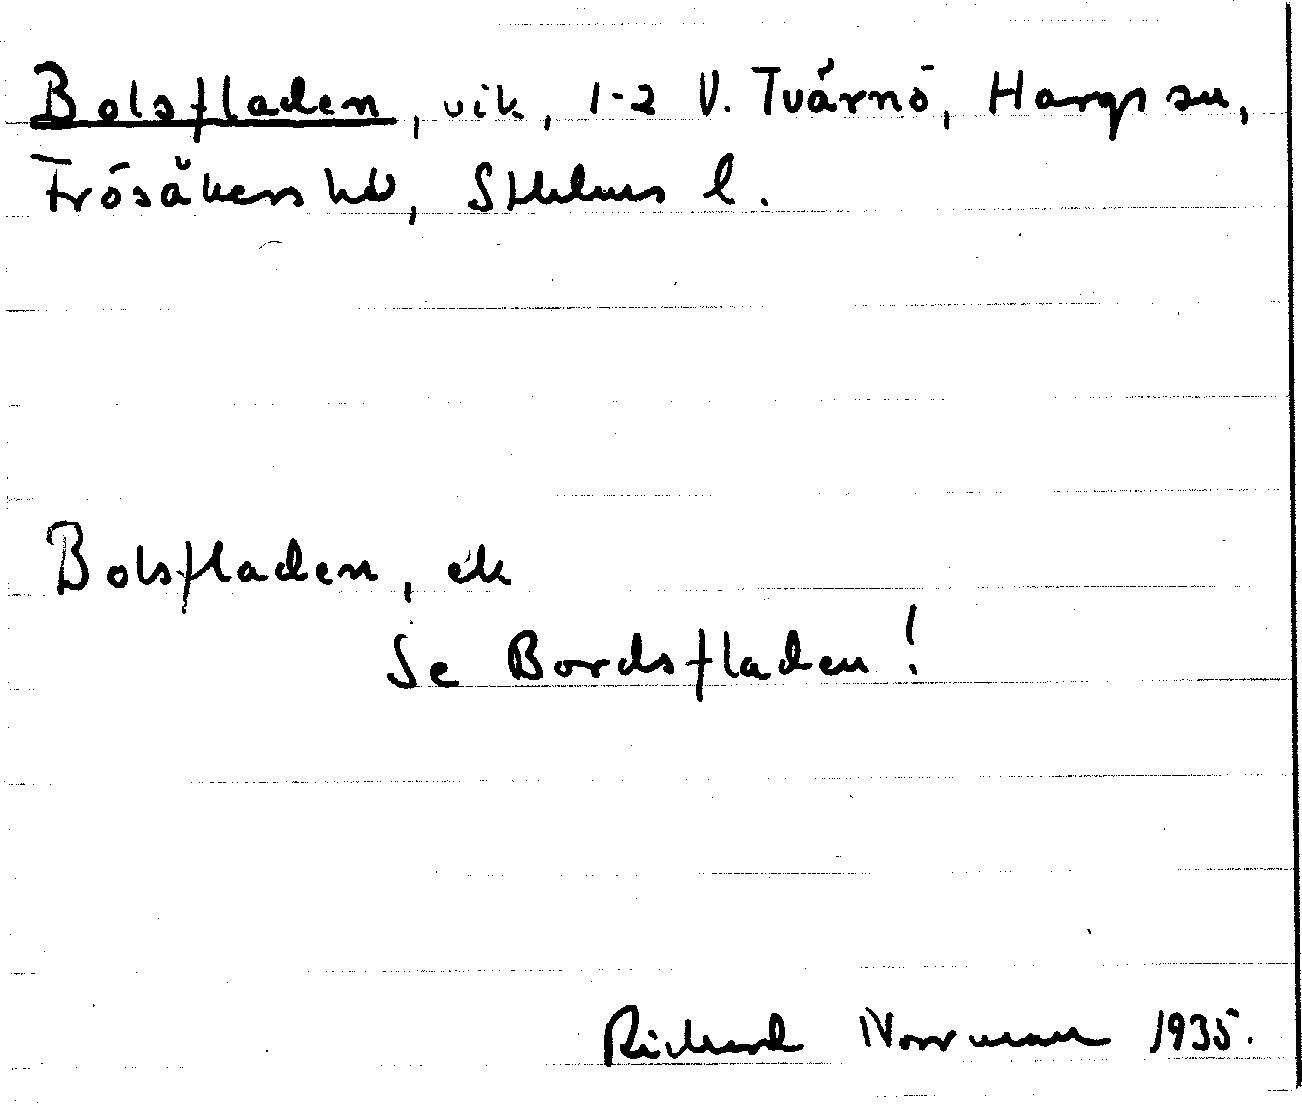 Bolsfladen, vik, 1-2 V. Tvärnö, Hargs sn,
Frösåkers hd, Sthlms l.
Bolsfladen, ek
Se Bordsfladen!
Richard Norrman 1935.